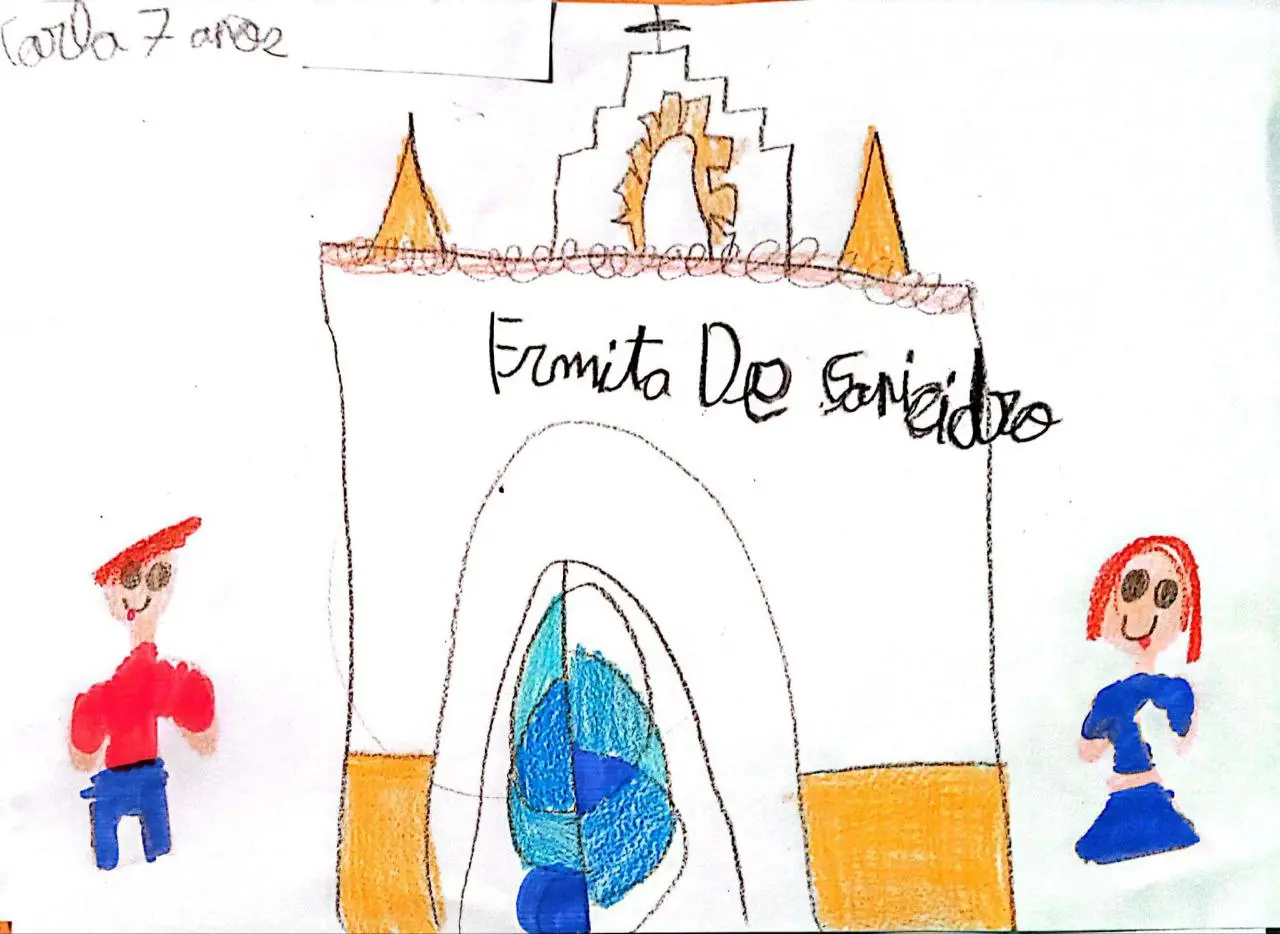 Carla 7 años
Ermita De Sanisidro